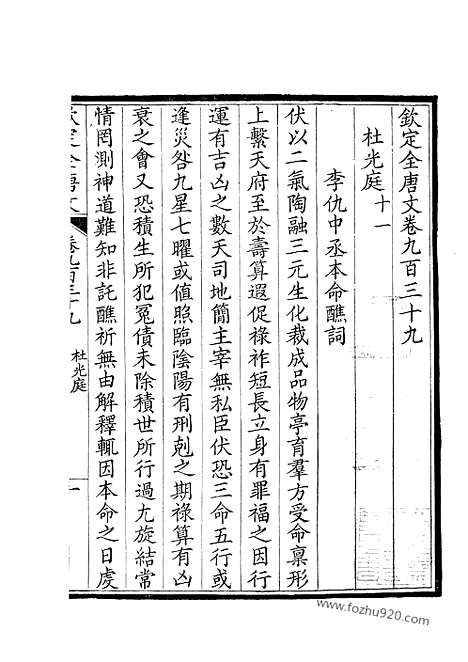 欽定全唐文卷九百三十九
杜光庭十一
李仇中丞本命醮詞
伏以二氣陶融三元生化裁成品物亭育羣方受命稟形
上繫天府至於壽算遐促祿祚短長立身有罪福之因行
運有吉凶之數天司地簡主宰無私臣伏恐三命五行或
逢災咎九星七曜或值照臨陰陽有刑剋之期祿算有凶
衰之會又恐積生所犯冤債未除積世所行過尤旋結常
情罔測神道難知非託醮祈無由解釋輒因本命之日虔
欽定全唐文
卷九百三十九
杜光庭
一
www.fozhu920.com